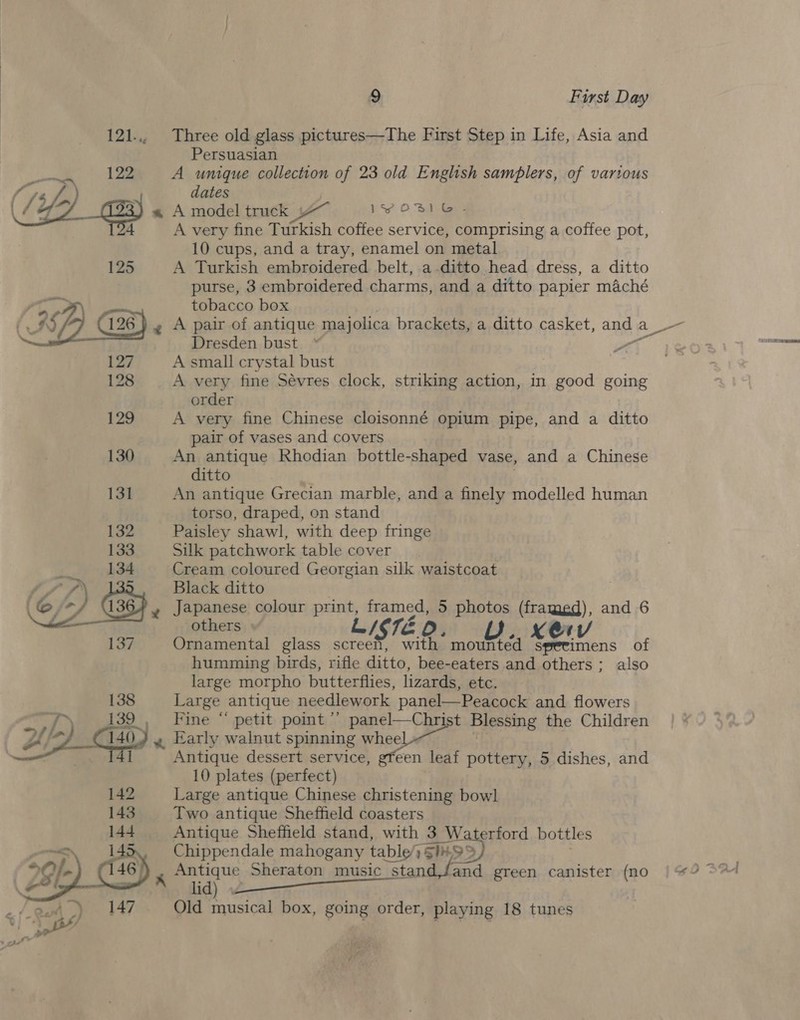 9 First Day
121., Three old glass pictures—The First Step in Life, Asia and
Persuasian
122 A unique collection of 23 old English samplers, of various
dates
123 A model truck
124 A very fine Turkish coffee service, comprising a coffee pot,
10 cups, and a tray, enamel on metal
125 A Turkish embroidered belt, a ditto head dress, a ditto
purse, 3 embroidered charms, and a ditto papier maché
tobacco box
126 A pair of antique majolica brackets, a ditto casket, and a
Dresden bust
127 A small crystal bust
128 A very fine Sévres clock, striking action, in good going
order
129 A very fine Chinese cloisonné opium pipe, and a ditto
pair of vases and covers
130 An antique Rhodian bottle-shaped vase, and a Chinese
ditto
131 An antique Grecian marble, and a finely modelled human
torso, draped, on stand
132 Paisley shawl, with deep fringe
133 Silk patchwork table cover
134 Cream coloured Georgian silk waistcoat
135 Black ditto
136 Japanese colour print, framed, 5 photos (framed), and 6
others
137 Ornamental glass screen, with mounted specimens of
humming birds, rifle ditto, bee-eaters and others ; also
large morpho butterflies, lizards, etc.
138 Large antique needlework panel—Peacock and flowers
139 Fine “ petit point ” panel—Christ Blessing the Children
140 Early walnut spinning wheel
141 Antique dessert service, green leaf pottery, 5 dishes, and
10 plates (perfect)
142 Large antique Chinese christening bowl
143 Two antique Sheffield coasters
144 Antique Sheffield stand, with 3 Waterford bottles
145 Chippendale mahogany table
146 Antique Sheraton music stand, and green canister (no
lid)
147 Old musical box, going order, playing 18 tunes